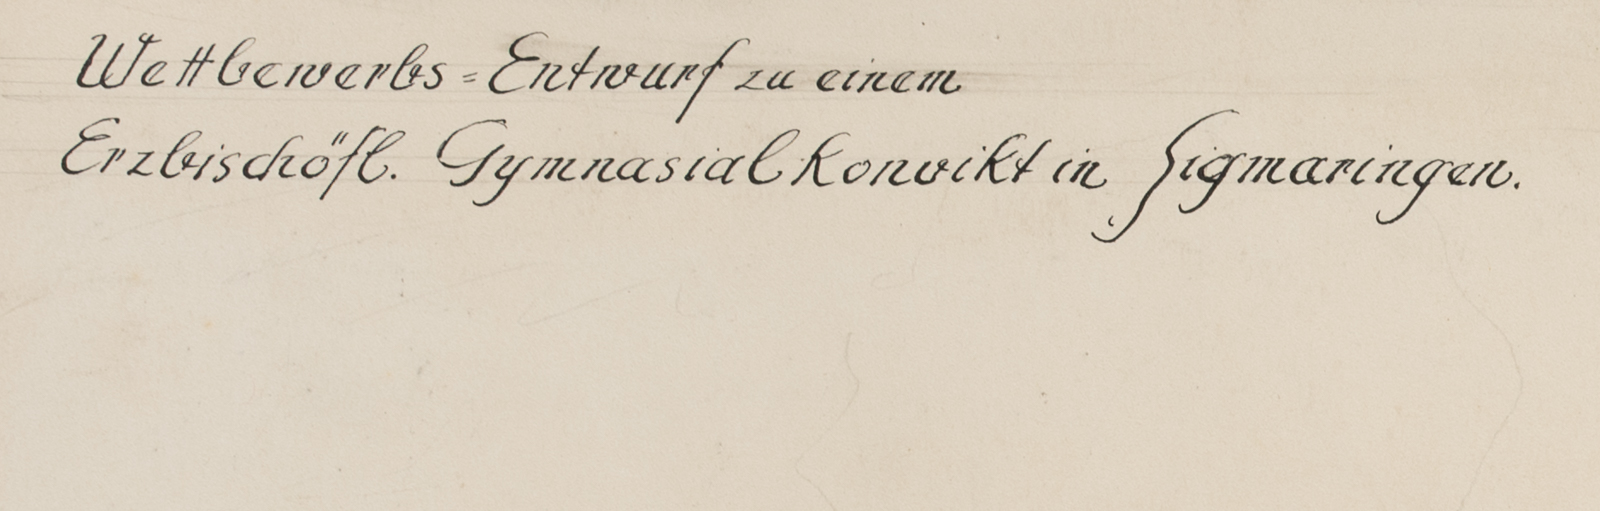 Wettbewerbs=Entwurf zu einem
Erzbischöfl. Gymnasialkonvikt in Sigmaringen.